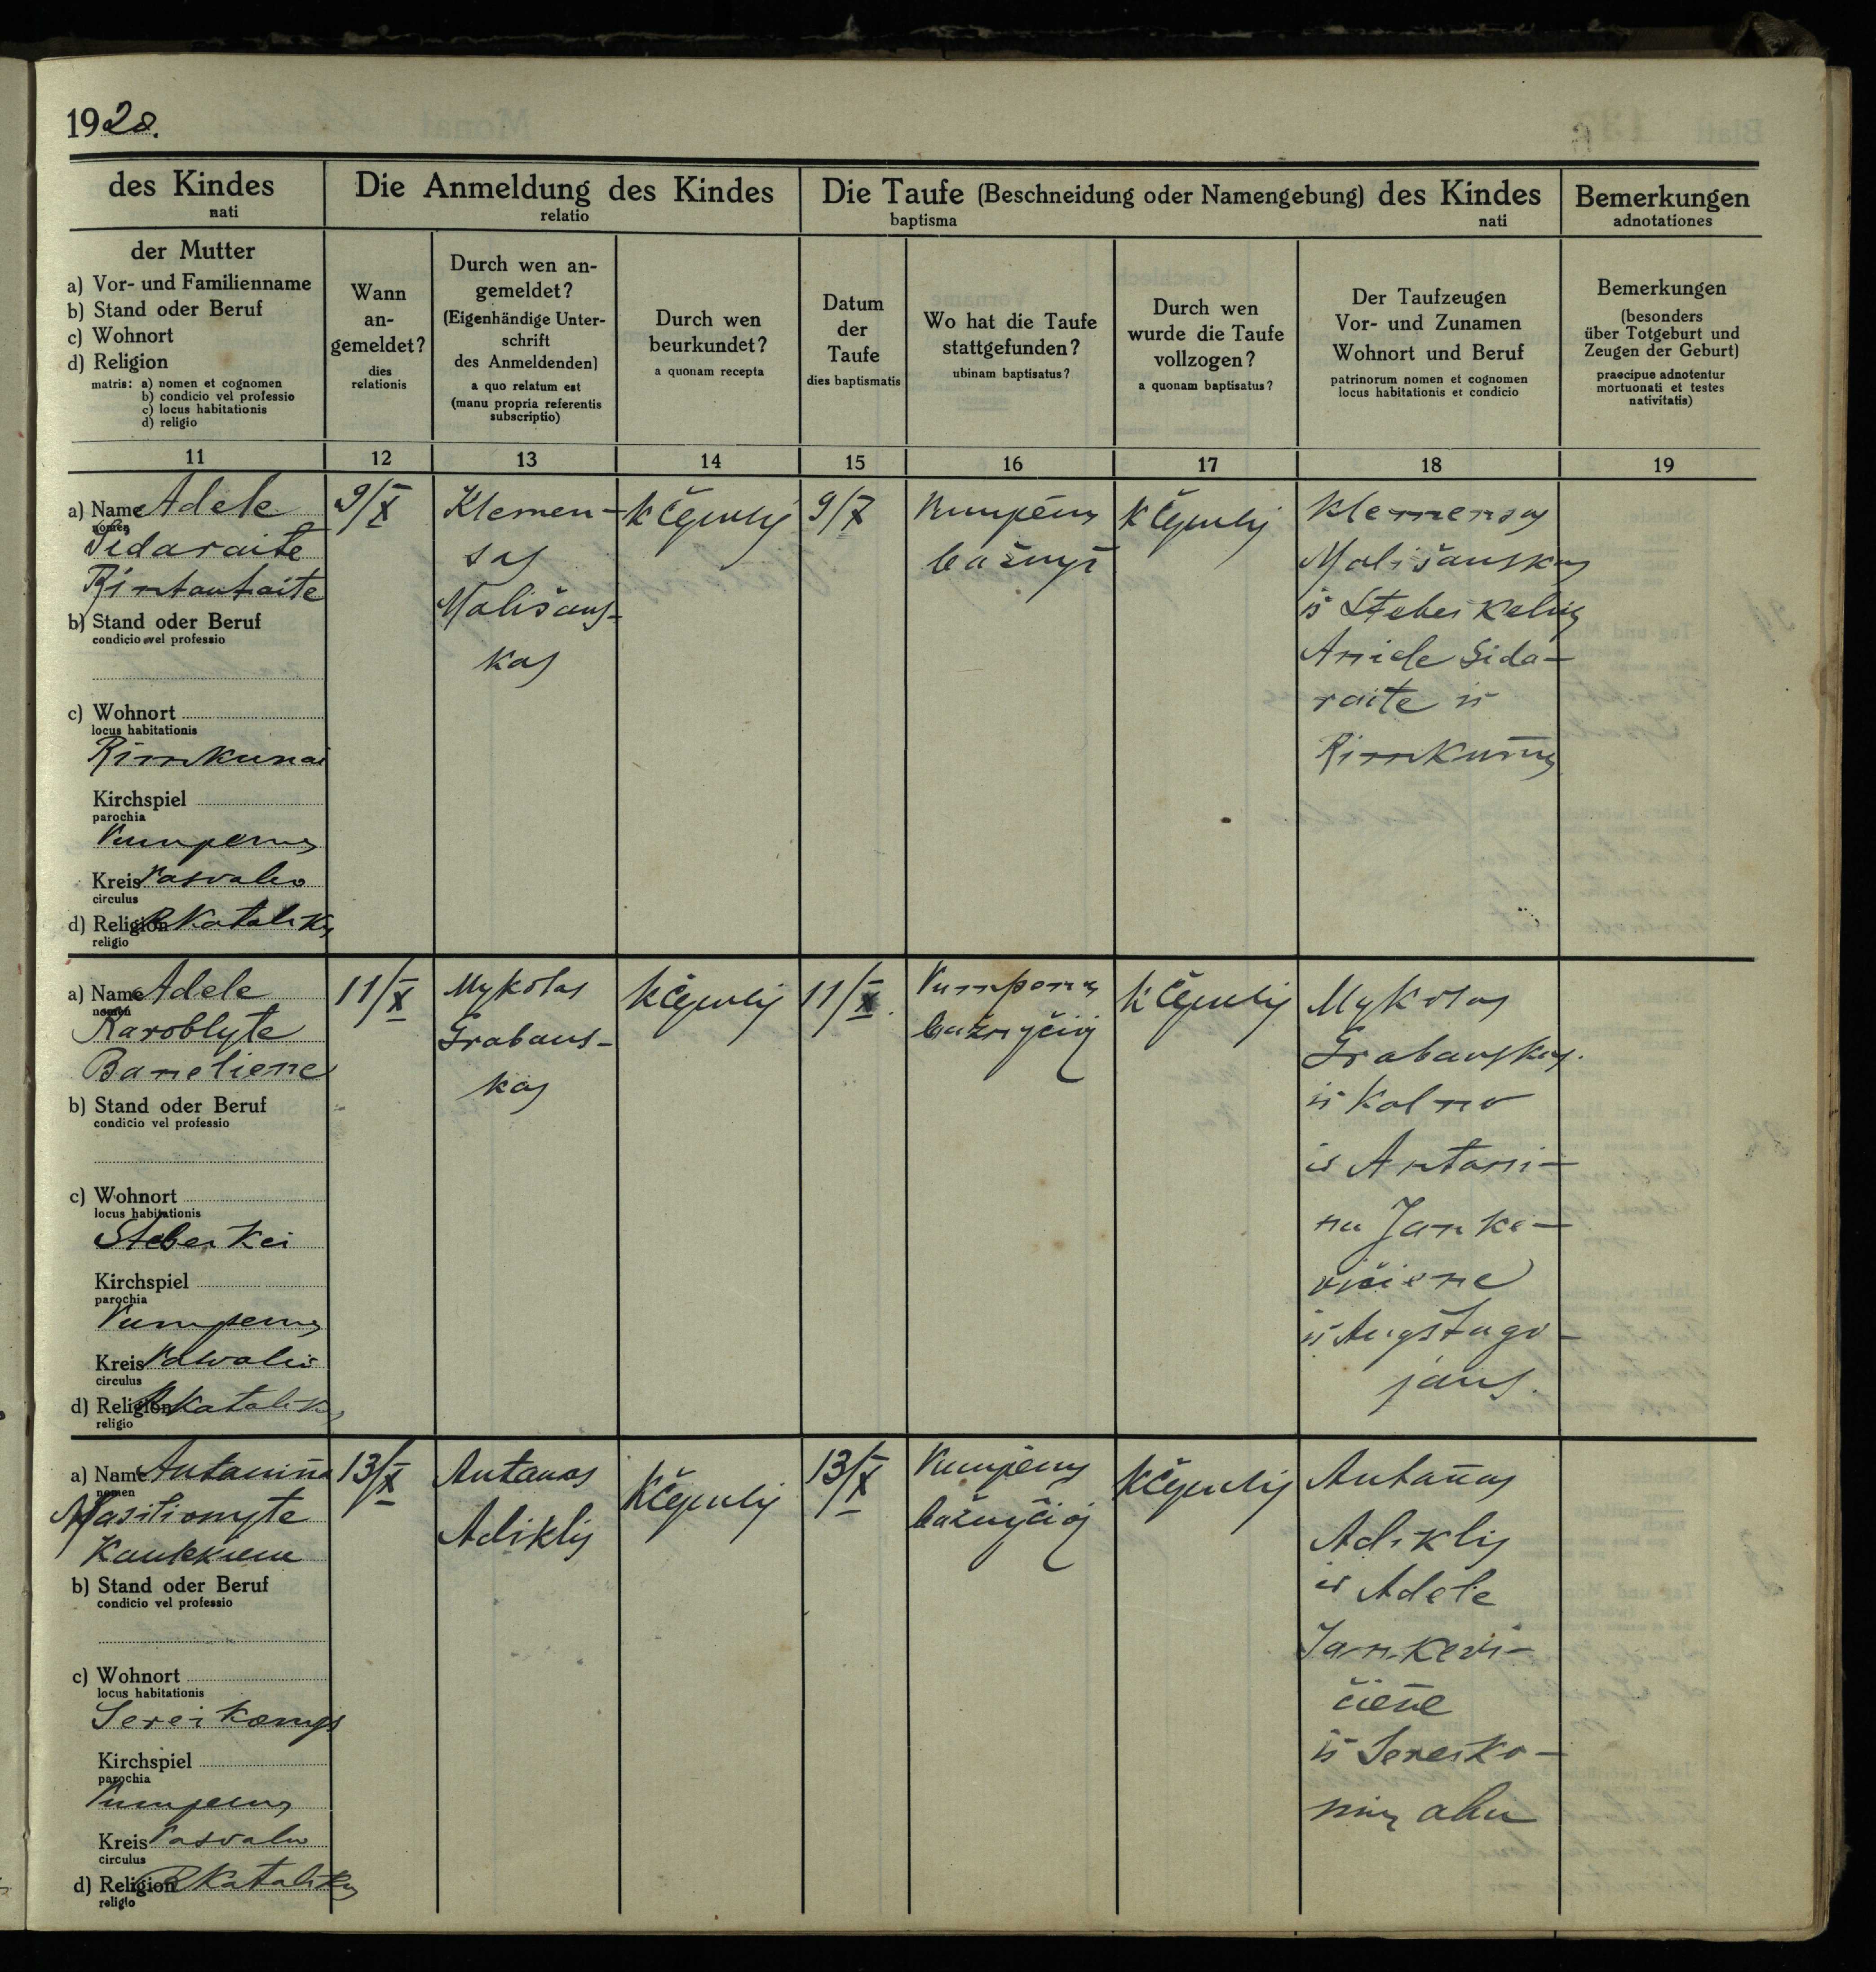 1920.
des Kindes
nati
Die Anmeldung des Kindes
relatio
Die Taufe (Beschneidung oder Namengebung) des Kindes
baptisma nati
Bemerkungen
adnotationes
der Mutter
a) Vor- und Familienname
b) Stand oder Beruf
c) Wohnort
d) Religion
matris: a) nomen et cognomen
b) condicio vel professio
c) locus habitationis
d) religio
Wann
an-
gemeldet?
dies
relationis
Durch wen an-
gemeldet?
(Eigenhändige Unter-
schrift
des Anmeldenden)
a quo relatum est
(manu propria referentis
subscriptio)
Durch wen
beurkundet?
a quonam recepta
Datum
der
Taufe
dies baptismatis
Wo hat die Taufe
stattgefunden?
ubinam baptisatus?
Durch wen
wurde die Taufe
vollzogen?
a quonam baptisatus?
Der Taufzeugen
Vor- und Zunamen
Wohnort und Beruf
patrinorum nomen et cognomen
locus habitationis et condicio
Bemerkungen
(besonders
über Totgeburt und
Zeugen der Geburt)
praecipue adnotentur
mortuonati et testes
nativitatis)
11 12 13 14 15 16 17 18 19
a) Name Adele
nomen
Sidaraite
Rintautaite
b) Stand oder Beruf
condicio vel professio
c) Wohnort
locus habitationis
Rimkunai
Kirchspiel
parochia
Kreis Pasvalio
circulus
d) Religion R Katalikų
religio
9/X
Klemen-
sas
Mališaus-
kas
9/X
Klemensas
Mališauskas
iš Steberkelių
Aniele Sida-
raite iš
Rimkunų
a) Name Adele
nomen
Karoblyte
Baneliene
b) Stand oder Beruf
condicio vel professio
c) Wohnort
locus habitationis
Steberkei
Kirchspiel
parochia
Kreis Pasvalio
circulus
d) Religion R Katalikų
religio
11/X
Mykolas
Grabaus-
kas
11/X.
bažnyčioj
Mykolas
Grabauskas.
iš Kalno
ir Antani-
na Janke-
vičiene
iš Augštago-
jaus.
a) Name Antanina
nomen
Masilionyte
b) Stand oder Beruf
condicio vel professio
c) Wohnort
locus habitationis
Kirchspiel
parochia
Kreis Pasvalio
circulus
d) Religion R Katalikų
religio
13/X
Antanas
Adiklis
13/X
bažnyčioj
Antanas
Adiklis
ir Adele
Jankevi-
čiene